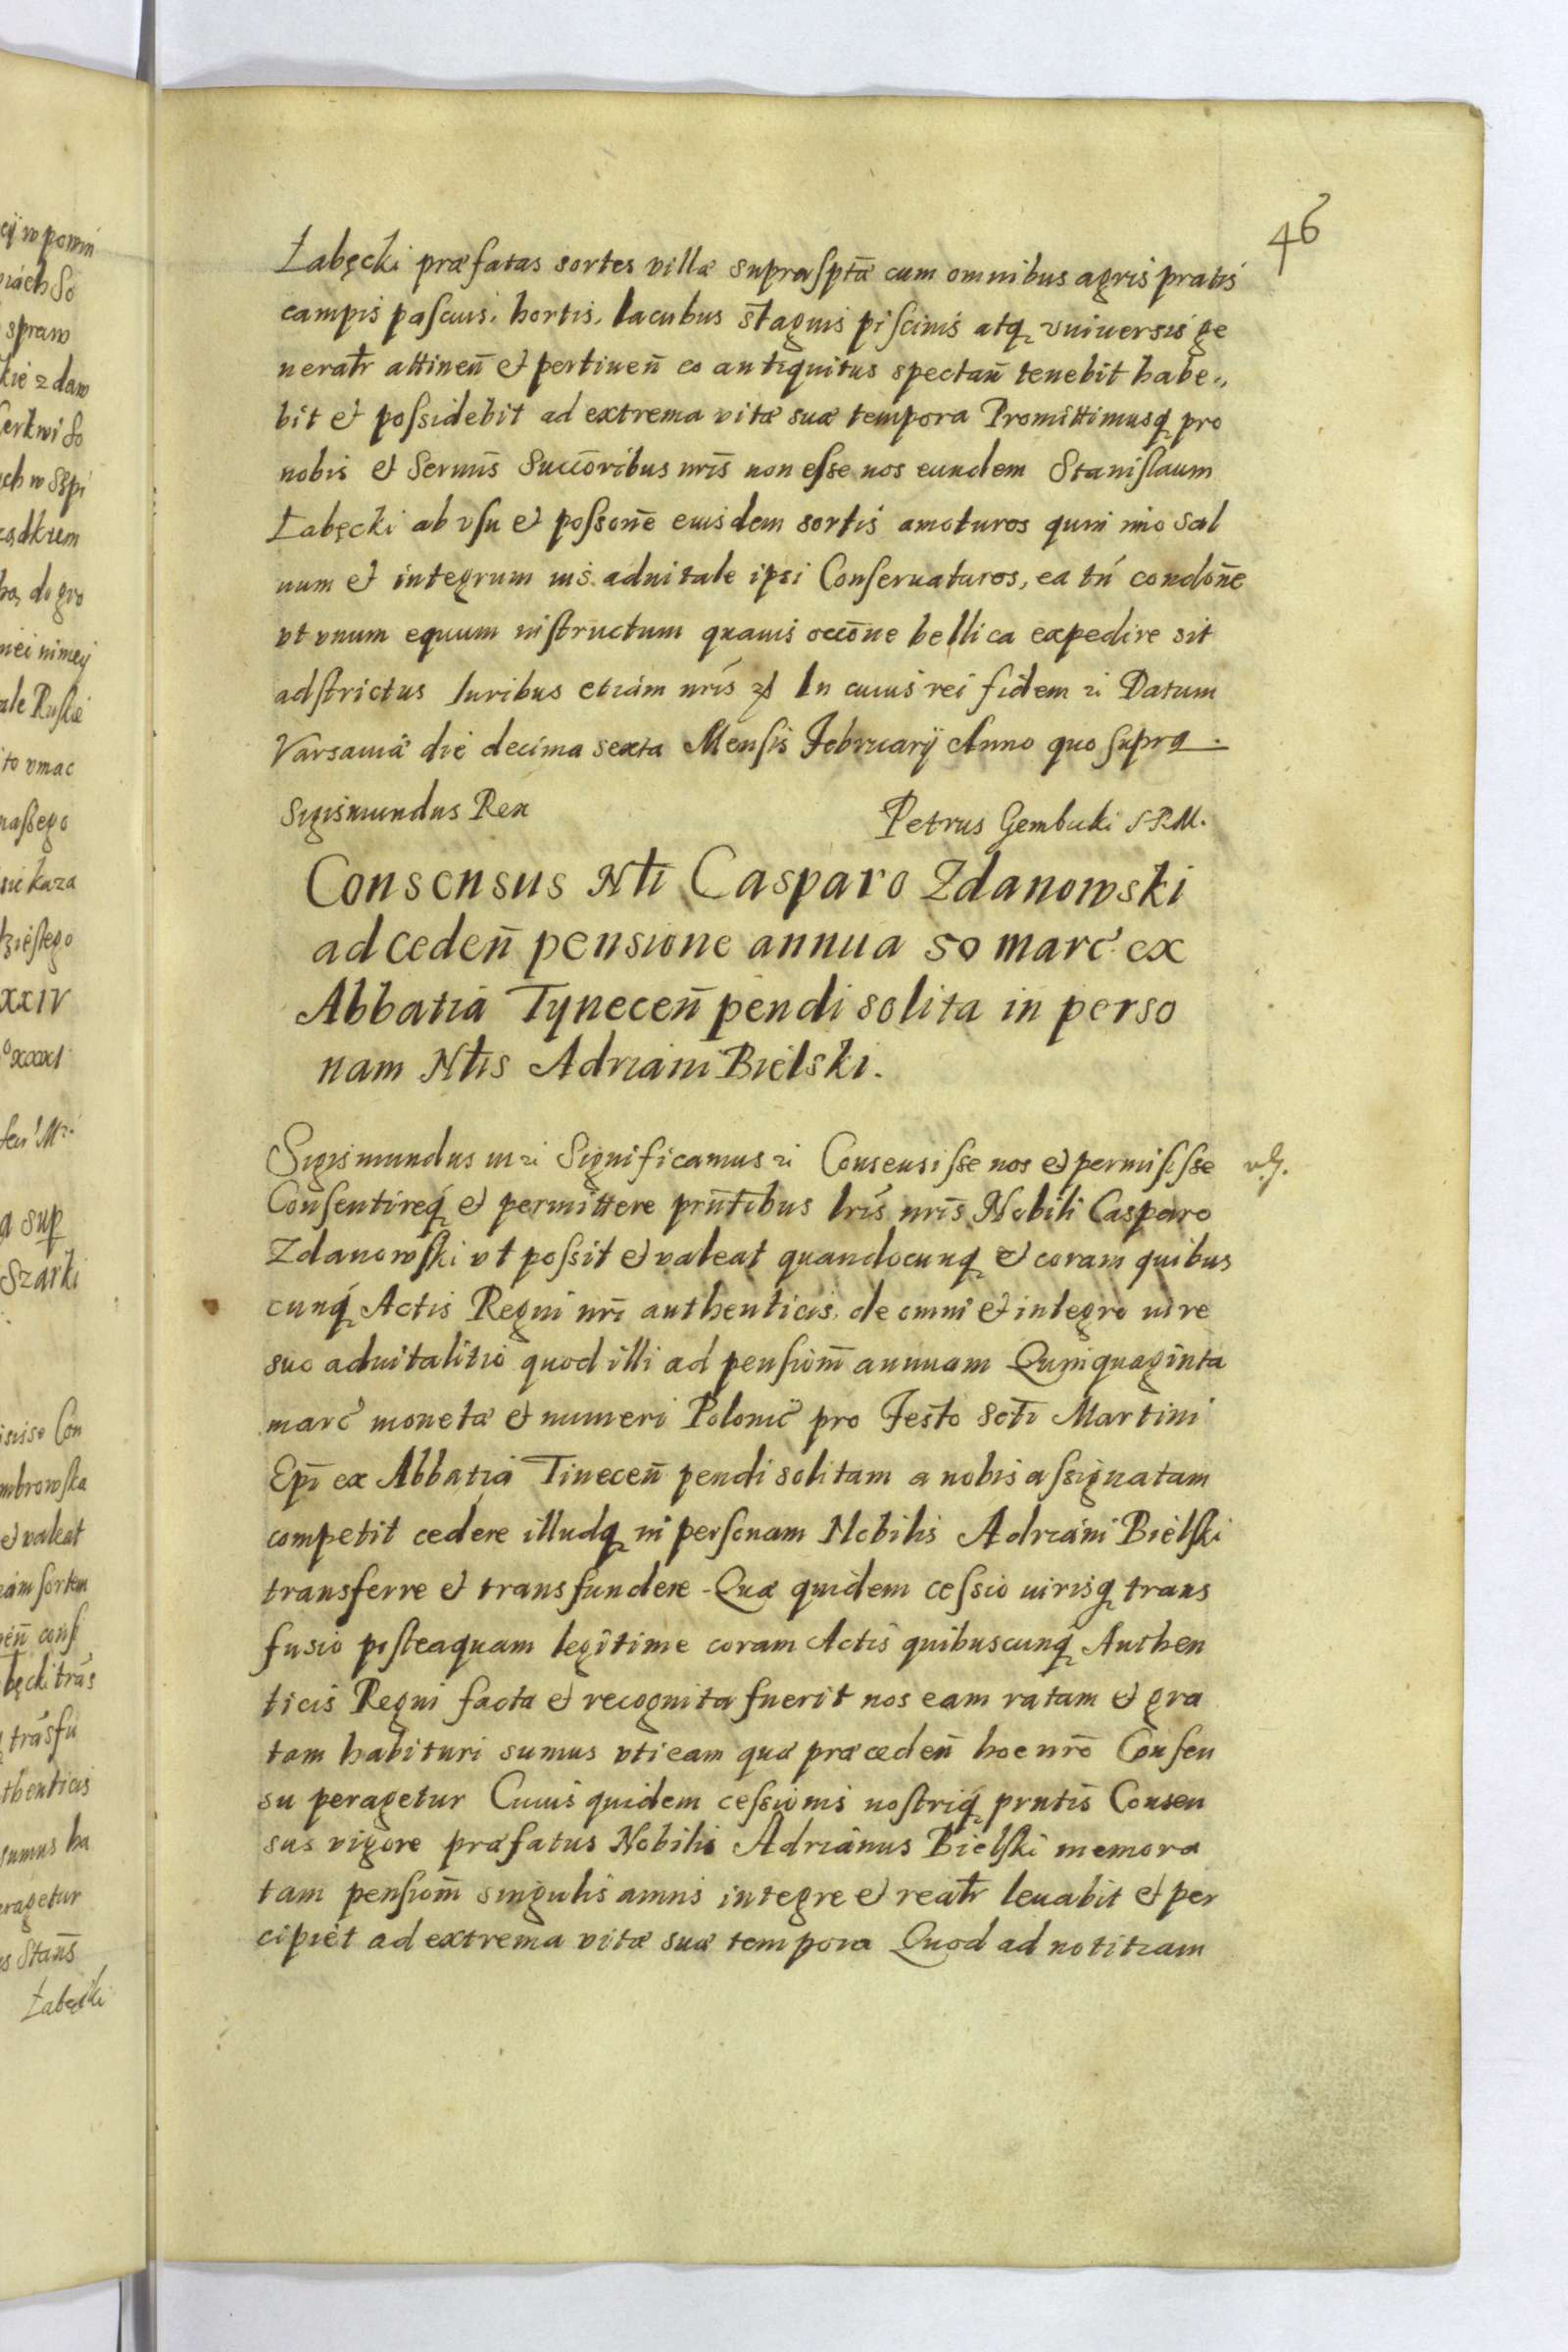 46
Łabęcki præfatas sortes villæ suprasptæ cum omnibus agris pratis
campis pascuis, hortis, lacubus stagnis piscinis atq vniuersis ge
neralr attineñ et pertineñ eo antiquitus spectañ tenebit habe„
bit et possidebit ad extrema vitæ suæ tempora Promittimusq pro
nobis et Sermis Succoribus nris non esse nos eundem Stanislaum
Łabęcki ab vsu et possone eiusdem sortis amoturos quin imo sal
uum et integrum ius aduitale ipsi Conseruaturos, ea tn condone
vt vnum equum instructum quauis occone bellica expedire sit
adstrictus Iuribus etiam nris In cuius rei fidem Datum
Varsauiæ die decima sexta Mensis February Anno quo supra.
Sigismundus Rex
Petrus Gembicki S P. M.
Consensus Nli Casparo Zdanowski
ad cedeñ pensione annua 50 marc ex
Abbatia Tyneceñ pendi solita in perso
nam Nlis Adriani Bielski.
Sigismundus III Significamus Consensisse nos et permisisse
Consentireq et permittere prntibus lris nris Nobili Casparo
Zdanowski vt possit et valeat quandocunq et coram quibus
cunq Actis Regni nri authenticis, de omni et integro iure
suo aduitalitio quod illi ad pensionm annuam Quinquaginta
marc monetæ et numeri Polonic pro Festo Scti Martini
Epi ex Abbatia Tineceñ pendi solitam a nobis assignatam
competit cedere illudq in personam Nobilis Adriani Bielski
transferre et transfundere Quæ quidem cessio iurisq trans
fusio posteaquam legitime coram Actis quibuscunq Authen
ticis Regni facta et recognita fuerit nos eam ratam et gra
tam habituri sumus vti eam quæ præcedeñ hoc nro Consen
su peragetur Cuius quidem cessionis nostriq prntis Consen
sus vigore præfatus Nobilis Adrianus Bielski memora
tam pensionm singulis annis integre et realr leuabit et per
cipiet ad extrema vitæ suæ tempora Quod ad notitiam